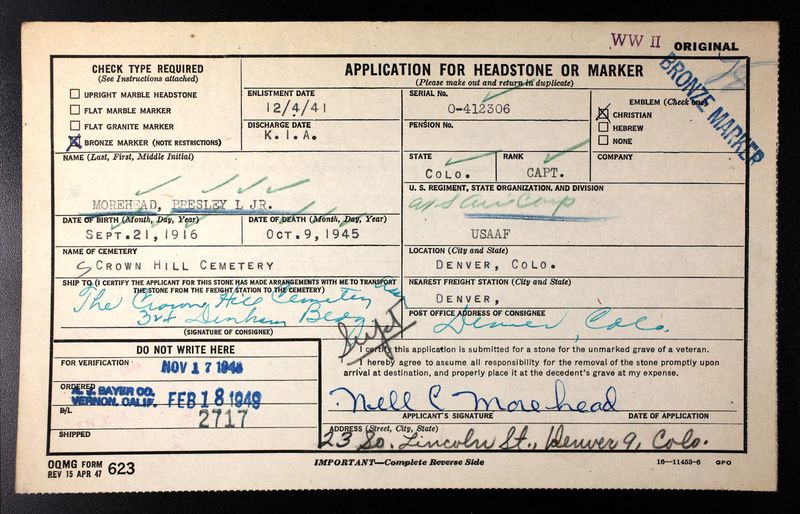 WW II ORIGINAL
BRONZE MARKER
CHECK TYPE REQUIRED
(See Instructions attached)
UPRIGHT MARBLE HEADSTONE
FLAT MARBLE MARKER
FLAT GRANITE MARKER
X BRONZE MARKER (NOTE RESTRICTIONS)
APPLICATION FOR HEADSTONE OR MARKER
(Please make out and return in duplicate)
ENLISTMENT DATE
12/4/41
DISCHARGE DATE
K.I.A.
SERIAL No.
O-412306
PENSION No.
EMBLEM (Check one)
X CHRISTIAN
HEBREW
NONE
STATE
COLO.
RANK
CAPT.
COMPANY
NAME (Last, First, Middle Initial)
MOREHEAD, PRESLEY L JR.
U. S. REGIMENT, STATE ORGANIZATION, AND DIVISION
USAAF
DATE OF BIRTH (Month, Day, Year)
SEPT.21,1916
DATE OF DEATH (Month, Day, Year)
OCT.9,1945
NAME OF CEMETERY
CROWN HILL CEMETERY
LOCATION (City and State)
DENVER, COLO.
SHIP TO (I CERTIFY THE APPLICANT FOR THIS STONE HAS MADE ARRANGEMENTS WITH ME TO TRANSPORT
THE STONE FROM THE FREIGHT STATION TO THE CEMETERY)
The Crown Hill Cemetery
Denham Bldg
(SIGNATURE OF CONSIGNEE)
NEAREST FREIGHT STATION (City and State)
DENVER,
POST OFFICE ADDRESS OF CONSIGNEE
Denver, Colo.
Supt
DO NOT WRITE HERE
FOR VERIFICATION
NOV 17 1948
ORDERED
A. J. BAYER CO.
VERNON, CALIF. FEB 18 1949
B/L
2717
SHIPPED
I certify this application is submitted for a stone for the unmarked grave of a veteran.
I hereby agree to assume all responsibility for the removal of the stone promptly upon
arrival at destination, and properly place it at the decedent's grave at my expense.
Nell C Morehead
APPLICANT'S SIGNATURE DATE OF APPLICATION
ADDRESS (Street, City, State)
23 So. Lincoln St., Denver 9, Colo.
OQMG FORM
REV 15 APR 47 623
IMPORTANT—Complete Reverse Side
16—11453-6 GPO